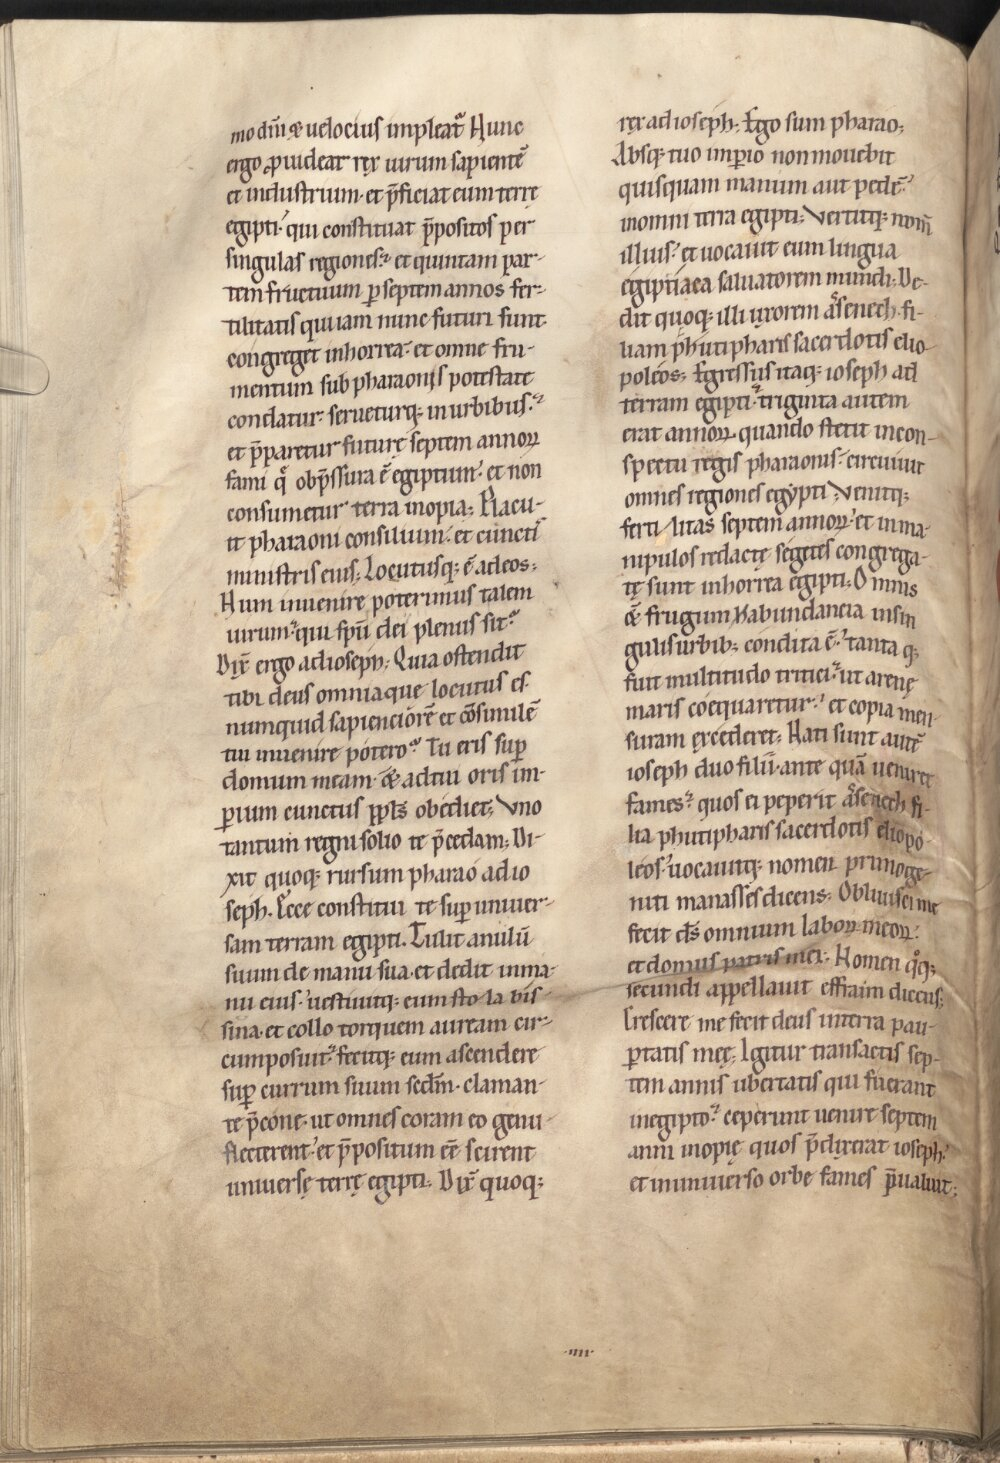 mo dn̄i æ uelocius impleat᷑ Nunc
ergo ꝓuideat rex uirum sapientē
et industrium· et p̄ficiat eum terrę
egipti· qui constituat p̄positos per
singulas regiones· et quintam par-
tem fructuum ꝑ septem annos fer-
tilitatis qui iam nunc futuri sunt·
congreget inhorrea· et omne fru-
mentum sub pharaonis potestate
condatur· serueturq; inurbibus·
et p̄paretur futurę septem annoꝝ
fami q̄ obp̄ssura ē egiptum· et non
consumetur terra inopia; Placu-
it pharaoni consilium· et cuncti
ministris eius; Locutusq; ē adeos;
Num inuenire poterimus talem
uirum· qui sp̄u dei plenus sit·
Dix̄ ergo adioseph; Quia ostendit
tibi deus omnia que locutus es
numquid sapienciorē et cōsimilē
tui inuenire potero· Tu eris suꝑ
domum meam· & adtui oris im-
ꝑium cunctus ppls̄ obediet; Vno
tantum regni solio te p̄cedam; Di-
xit quoq; rursum pharao ad io
seph· Ecce constitui te suꝑ uniuer-
sam terram egipti· Tulit anulū
suum de manu sua· et dedit inma-
nu eius· uestiuitq; eum sto la bis
sina· et collo torquem auream cir-
cumposuit· fecitq; eum ascendere
suꝑ currum suum secdm̄· claman-
te p̄cone· ut omnes coram eo genu-
flecterent· et p̄positum eē scirent
uniuersę terrę egipti; Dix̄ quoq;
rex ad ioseph; Ego sum pharao;
Absq; tuo imꝑio non mouebit
quisquam manum aut pedē·
inomni terra egipti; Vertitq; nom̄
illius· et uocauit eum lingua
egiptiaca saluatorem mundi; De-
dit quoq; illi uxorem asenech· fi-
liam phutipharis sacerdotis elio-
poleos; Egressus itaq; ioseph ad
terram egipti· triginta autem
erat annoꝝ quando stetit incon-
spectu regis pharaonis· circuiuit
omnes regiones egypti Venitq;
ferti litas septem annoꝝ· et inma-
nipulos redactę segetes congrega-
tę sunt inhorrea egipti; Omnis
& frugum habundancia insin
gulis urbib; condita ē· tanta q;
fuit multitudo tritici· ut arenę
maris coequaretur· et copia men-
suram excederet; Nati sunt autē
ioseph duo filii· ante quā ueniret
fames· quos ei peperit asenech fi-
lia phutipharis sacerdotis eliopo-
leos· uocauitq; nomen primoge-
niti manasses dicens; Obliuisci me
fecit ds̄ omnium laboꝝ meoꝝ·
et domus patris mei; Nomen q̊q;
secundi appellauit effraim dicens;
Crescere me fecit deus interra pau-
ꝑtatis meę; Igitur transactis sep-
tem annis ubertatis qui fuerant
inegipto· ceperunt uenire septem
anni inopię quos p̄dixerat ioseph·
et inuniuerso orbe fames p̄ualuit;
·iiii·